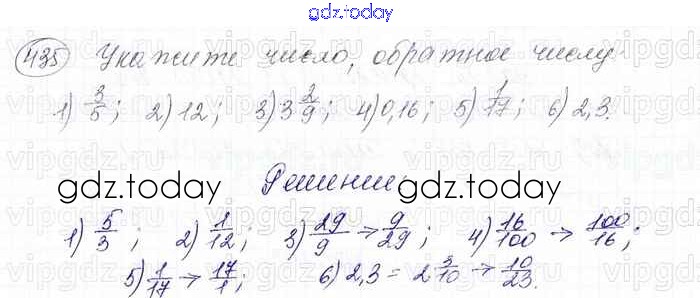 gdz.today
435 Укажите число, обратное числу
1) 3/5; 2) 12; 3) 3 2/9; 4) 0,16; 5) 1/17; 6) 2,3.
gdz.today gdz.today
Решение:
1) 5/3; 2) 1/12; 3) 29/9 → 9/29; 4) 16/100 → 100/16;
5) 1/17 → 17/1; 6) 2,3 = 2 3/10 → 10/23.